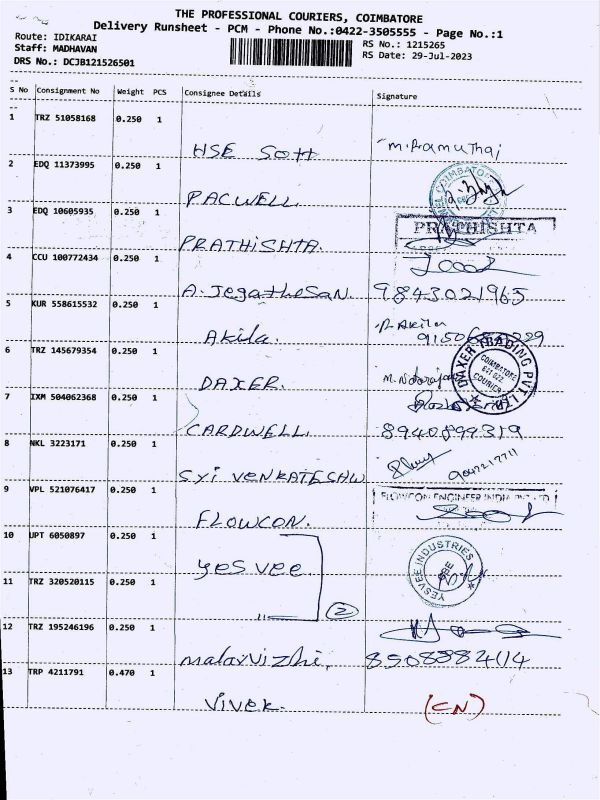 THE PROFESSIONAL COURIERS, COIMBATORE
Delivery Runsheet - PCM - Phone No.:0422-3505555 - Page No.:1
Route: IDIKARAI
Staff: MADHAVAN
DRS No.: DCJB121526501
RS No.: 1215265
RS Date: 29-Jul-2023
S No Consignment No Weight PCS Consignee Details Signature
1 TRZ 51058168 0.250 1
HSE Sott M. Pramuthai
2 EDQ 11373995 0.250 1
PACWELL
3 EDQ 10605935 0.250 1
PRATHISHTA
PRATHiSHTA.
4 CCU 100772434 0.250 1
A. JegatheSaN. 9843021965
5 KUR 558615532 0.250 1
Akila. P. Akila
6 TRZ 145679354 0.250 1
DAXER. DAXER TRADING PVT. LTD
COIMBATORE
641 022
COURIER
7 IXM 504062368 0.250 1
CARDWELL 8940899319
8 NKL 3223171 0.250 1
Syi VENKATESHW
9 VPL 521076417 0.250 1
FLOWCON ENGINEER INDIA PVT LTD
FLOWCON.
10 UPT 6050897 0.250 1
yesvee YESVEE INDUSTRIES
11 TRZ 320520115 0.250 1
2
12 TRZ 195246196 0.250 1
malarvizhi. 8508882414
13 TRP 4211791 0.470 1
Vivek. (CN)